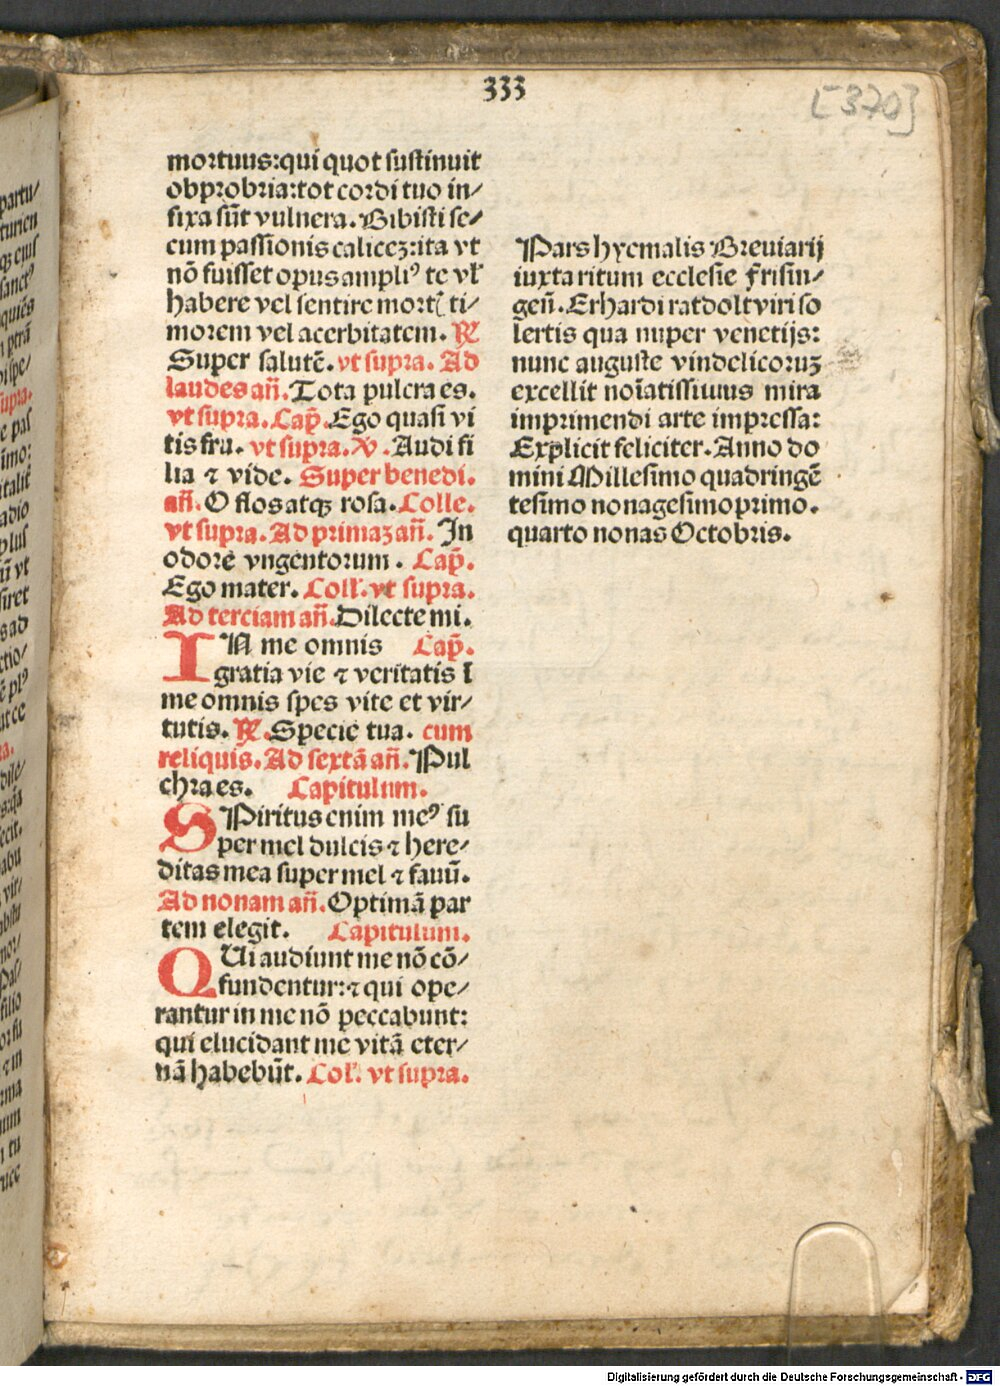 333
[370]
mortuus:qui quot sustinuit
obprobria:tot cordi tuo in/
fixa sūt vulnera. Bibisti se/
cum passionis calicez:ita vt
nō fuisset opus ampliꝰ te vł
habere vel sentire mort ti/
morem vel acerbitatem. ℟.
Super salutē. vt supra. Ad
laudes añ. Tota pulcra es.
vt supra. Cap̄. Ego quasi vi
tis fru. vt supra. ℣. Audi fi
lia ⁊ vide. Super benedi.
añ. O flos atqꝫ rosa. Colle.
vt supra. Ad primaz añ. In
odore vngentorum. Cap̄.
Ego mater. Coll. vt supra.
Ad terciam añ. Dilecte mi.
IN me omnis Cap̄.
gratia vie ⁊ veritatis ī
me omnis spes vite et vir/
tutis. ℟. Specie tua. cum
reliquis. Ad sextā añ. Pul
chra es. Capitulum.
SPiritus enim meꝰ su
per mel dulcis ⁊ here/
ditas mea super mel ⁊ fauū.
Ad nonam añ. Optimā par
tem elegit. Capitulum.
QUi audiunt me nō cō/
fundentur:⁊ qui ope/
rantur in me nō peccabunt:
qui elucidant me vitā eter/
nā habebūt. Col. vt supra.
Pars hyemalis Breuiarij
iuxta ritum ecclesie frisin/
geñ. Erhardi ratdolt viri so
lertis qua nuper venetijs:
nunc auguste vindelicoruꝫ
excellit noīatissimus mira
imprimendi arte impressa:
Explicit feliciter. Anno do
mini Millesimo quadringē
tesimo nonagesimo primo.
quarto nonas Octobris.
Digitalisierung gefördert durch die Deutsche Forschungsgemeinschaft - DFG